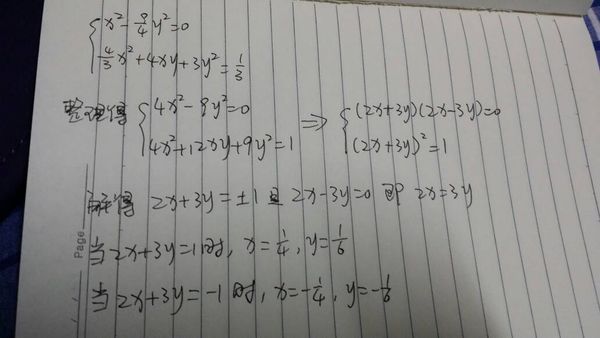 {x²-9/4y²=0
{4/3x²+4xy+3y²=1/3
整理得 {4x²-9y²=0 ⇒ {(2x+3y)(2x-3y)=0
{4x²+12xy+9y²=1 {(2x+3y)²=1
解得 2x+3y=±1 且 2x-3y=0 即 2x=3y
当 2x+3y=1时, x=1/4, y=1/6
当 2x+3y=-1时, x=-1/4, y=-1/6
Page